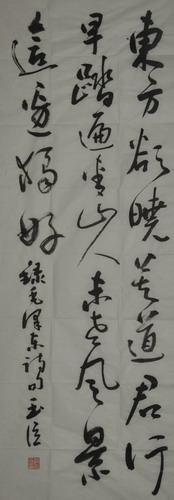 東方欲曉莫道君行
早踏遍青山人未老风景
這邊獨好
錄毛澤東詩句